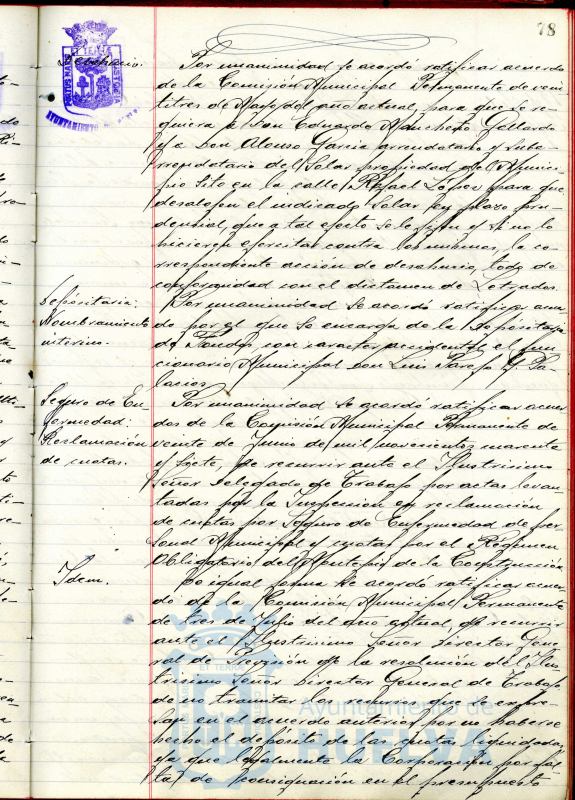 78
Desahucio.
Por unanimidad se acordó ratificar acuerdo
de la Comisión Municipal Permanente de vein-
titres de Mayo del año actual, para que se re-
quiera a Don Eduardo Mancheño Gallardo
y a Don Alonso García arrendatario y sub-
propietario del Solar propiedad del Munici-
pio sito en la calle Rafael López para que
desalojen el indicado Solar en plazo pru-
dencial, que a tal efecto se le fijen y si no lo
hicieren ejercitar contra los mismos, la co-
rrespondiente acción de desahucio, todo de
conformidad con el dictamen de Letrados.
Depositaría:
Nombramiento
interino.
Por unanimidad se acordó ratificar acuer-
do por el que se encarga de la Depositaría
de Fondos con carácter accidental el fun-
cionario Municipal don Luis Parejo y Pa-
lacios.
Seguro de En-
fermedad:
Reclamación
de cuotas.
Por unanimidad se acordó ratificar acuer-
dos de la Comisión Municipal Permanente de
veinte de Junio de mil novecientos cuarenta
y siete, de recurrir ante el Ilustrísimo
Señor Delegado de Trabajo por actas levan-
tadas por la Inspección en reclamación
de cuotas por Seguro de Enfermedad de per-
sonal Municipal y cuotas por el Régimen
Obligatorio del Montepío de la Construcción.
Idem.
De igual forma se acordó ratificar acuer-
do de la Comisión Municipal Permanente
de tres de Julio del año actual, de recurrir
ante el Ilustrísimo Señor Director Gene-
ral de Previsión de la resolución del Ilus-
trísimo Señor Director General de Trabajo
de no tramitar los recursos que se expre-
san en el acuerdo anterior por no haberse
hecho el depósito de las cuotas liquidadas
ya que legalmente la Corporación por fal-
ta de consignación en el presupuesto
Ayuntamiento de
HUELVA